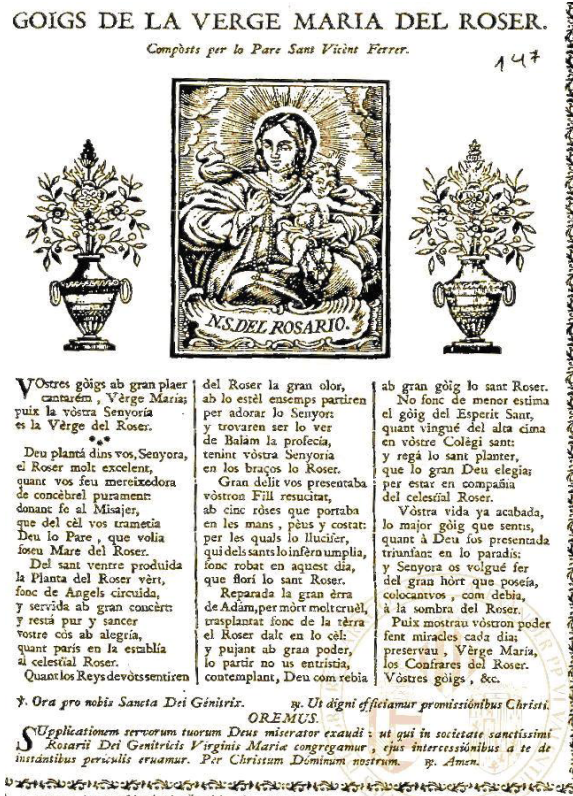 GOIGS DE LA VERGE MARIA DEL ROSER.
Compòsts per lo Pare Sant Vicènt Ferrer.
147
N.S.DEL ROSARIO.
VOstres gòigs ab gran plaer
cantarém, Vèrge Maria;
puix la vòstra Senyoría
es la Vèrge del Roser.
Deu plantá dins vos, Senyora,
el Roser molt excelent,
quant vos feu mereixedora
de concèbrel purament:
donant fe al Misajer,
que del cèl vos trametia
Deu lo Pare, que volia
foseu Mare del Roser.
Del sant ventre produida
la Planta del Roser vèrt,
fonc de Angels circuida,
y servida ab gran concèrt:
y restá pur y sancer
vostre còs ab alegría,
quant parís en la establía
al celestial Roser.
Quant los Reys devòts sentiren
del Roser la gran olor,
ab lo estèl ensemps partiren
per adorar lo Senyor:
y trovaren ser lo ver
de Balám la profecía,
tenint vòstra Senyoría
en los braços lo Roser.
Gran delit vos presentaba
vòstron Fill resucitat,
ab cinc ròses que portaba
en les mans, pèus y costat:
per les quals lo llucifer,
qui dels sants lo infèrn umplia,
fonc robat en aquest dia,
que florí lo sant Roser.
Reparada la gran èrra
de Adám, per mòrt molt cruèl,
trasplantat fonc de la tèrra
el Roser dalt en lo cèl:
y pujant ab gran poder,
lo partir no us entristia,
contemplant, Deu com rebia
ab gran gòig lo sant Roser.
No fonc de menor estima
el gòig del Esperit Sant,
quant vingué del alta cima
en vòstre Colègi sant:
y regá lo sant planter,
que lo gran Deu elegia;
per estar en compañia
del celestial Roser.
Vòstra vida ya acabada,
lo major gòig que sentis,
quant à Deu fos presentada
triunfant en lo paradis:
y Senyora os volgué fer
del gran hòrt que poseía,
colocantvos, com debia,
à la sombra del Roser.
Puix mostrau vòstron poder
fent miracles cada dia;
preservau, Vèrge María,
los Confrares del Roser.
Vòstres gòigs, &c.
℣. Ora pro nobis Sancta Dei Génitrix. ℟. Ut digni efficiamur promissiónibus Christi.
OREMUS.
SUpplicationem servorum tuorum Deus miserator exaudi: ut qui in societate sanctissimi
Rosarii Dei Genitricis Virginis Mariæ congregamur, ejus intercessiónibus a te de
instántibus periculis eruamur. Per Christum Dóminum nostrum. ℟. Amen.